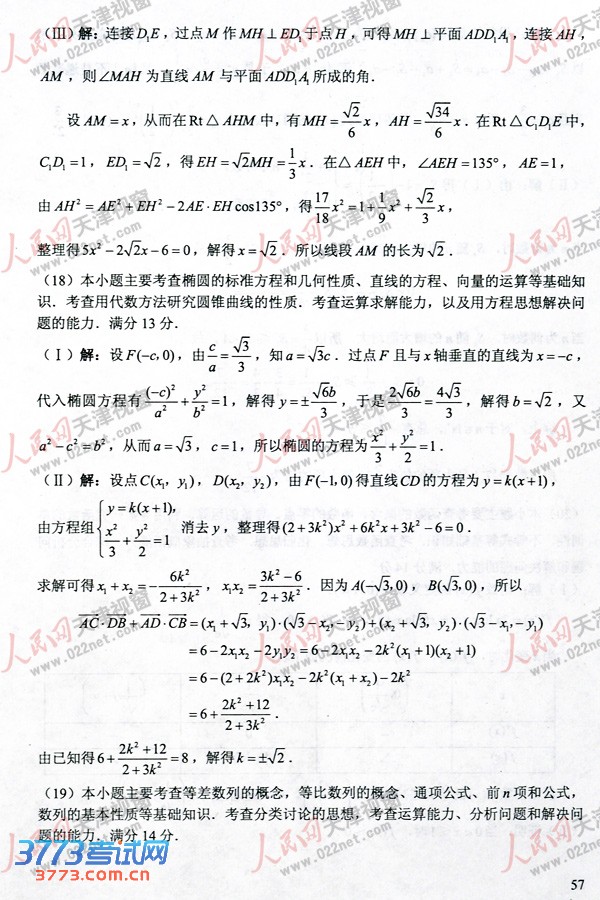 (Ⅲ)解:连接D₁E,过点M作MH⊥ED₁于点H,可得MH⊥平面ADD₁A₁,连接AH,
AM,则∠MAH为直线AM与平面ADD₁A₁所成的角.
设AM=x,从而在Rt△AHM中,有MH=√2/6 x,AH=√34/6 x.在Rt△C₁D₁E中,
C₁D₁=1,ED₁=√2,得EH=√2MH=1/3 x.在△AEH中,∠AEH=135°,AE=1,
由AH²=AE²+EH²-2AE·EHcos135°,得17/18 x²=1+1/9 x²+√2/3 x,
整理得5x²-2√2x-6=0,解得x=√2.所以线段AM的长为√2.
(18)本小题主要考查椭圆的标准方程和几何性质、直线的方程、向量的运算等基础知
识.考查用代数方法研究圆锥曲线的性质.考查运算求解能力,以及用方程思想解决问
题的能力.满分13分.
(Ⅰ)解:设F(-c,0),由c/a=√3/3,知a=√3c.过点F且与x轴垂直的直线为x=-c,
代入椭圆方程有(-c)²/a²+y²/b²=1,解得y=±√6b/3,于是2√6b/3=4√3/3,解得b=√2,又
a²-c²=b²,从而a=√3,c=1,所以椭圆的方程为x²/3+y²/2=1.
(Ⅱ)解:设点C(x₁,y₁),D(x₂,y₂),由F(-1,0)得直线CD的方程为y=k(x+1),
由方程组{y=k(x+1), x²/3+y²/2=1 消去y,整理得(2+3k²)x²+6k²x+3k²-6=0.
求解可得x₁+x₂=-6k²/(2+3k²),x₁x₂=(3k²-6)/(2+3k²).因为A(-√3,0),B(√3,0),所以
AC·DB+AD·CB=(x₁+√3,y₁)·(√3-x₂,-y₂)+(x₂+√3,y₂)·(√3-x₁,-y₁)
=6-2x₁x₂-2y₁y₂=6-2x₁x₂-2k²(x₁+1)(x₂+1)
=6-(2+2k²)x₁x₂-2k²(x₁+x₂)-2k²
=6+(2k²+12)/(2+3k²).
由已知得6+(2k²+12)/(2+3k²)=8,解得k=±√2.
(19)本小题主要考查等差数列的概念,等比数列的概念、通项公式、前n项和公式,
数列的基本性质等基础知识.考查分类讨论的思想,考查运算能力、分析问题和解决问
题的能力.满分14分.
3773考试网
3773.com.cn
57
人民网天津视窗
www.022net.com